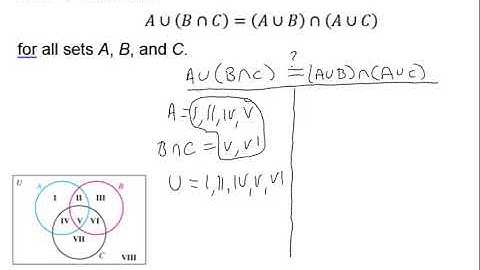 A ∪ (B ∩ C) = (A ∪ B) ∩ (A ∪ C)
for all sets A, B, and C.
A∪(B∩C) ≟ (A∪B)∩(A∪C)
A = I, II, IV, V
B∩C = V, VI
U = I, II, IV, V, VI
U
A
B
I
II
III
IV
V
VI
VII
C
VIII